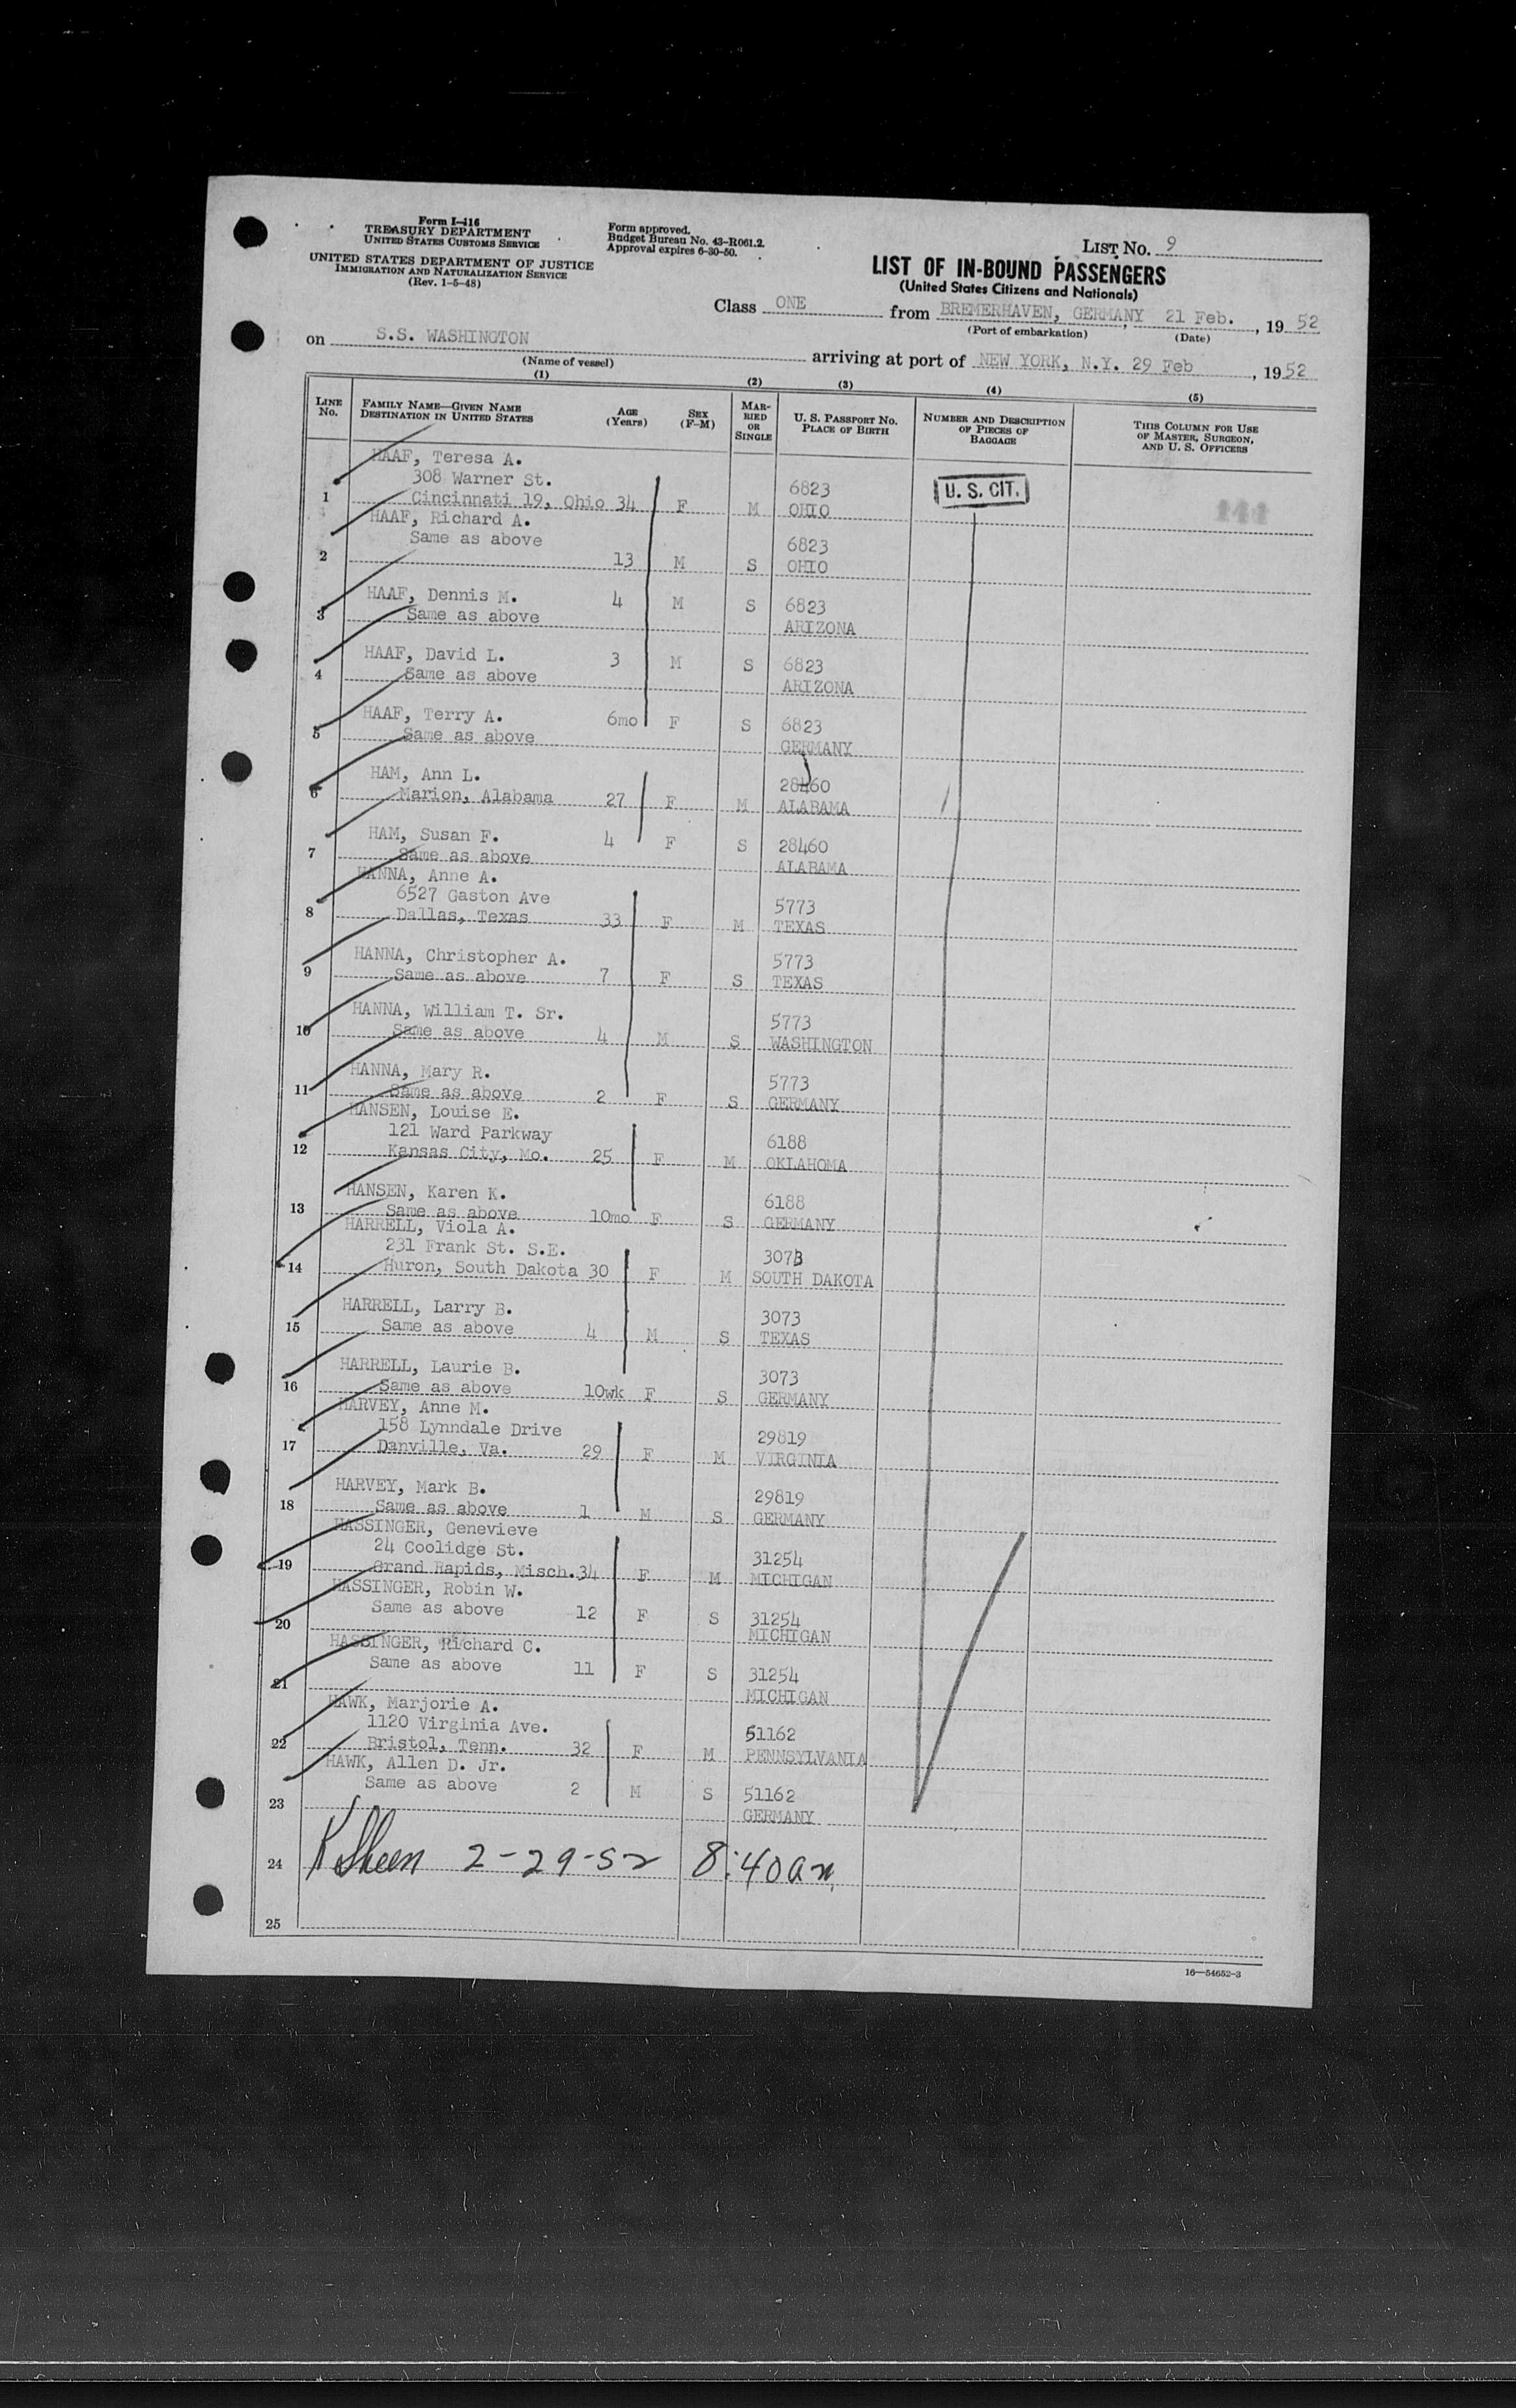 Form I-416
TREASURY DEPARTMENT
UNITED STATES CUSTOMS SERVICE
UNITED STATES DEPARTMENT OF JUSTICE
IMMIGRATION AND NATURALIZATION SERVICE
(Rev. 1-5-48)
Form approved.
Budget Bureau No. 43-R061.2.
Approval expires 6-30-50.
LIST No. 9
LIST OF IN-BOUND PASSENGERS
(United States Citizens and Nationals)
Class ONE from BREMERHAVEN, GERMANY, 21 Feb., 1952
(Port of embarkation) (Date)
on S.S. WASHINGTON arriving at port of NEW YORK, N.Y. 29 Feb, 1952
(Name of vessel)
(1) (2) (3) (4) (5)
LINE No. FAMILY NAME—GIVEN NAME DESTINATION IN UNITED STATES AGE (Years) SEX (F-M) MARRIED OR SINGLE U. S. PASSPORT NO. PLACE OF BIRTH NUMBER AND DESCRIPTION OF PIECES OF BAGGAGE THIS COLUMN FOR USE OF MASTER, SURGEON, AND U. S. OFFICERS
HAAF, Teresa A.
308 Warner St. 6823 U. S. CIT.
1 Cincinnati 19, Ohio 34 F M OHIO 141
HAAF, Richard A.
Same as above 6823
2 13 M S OHIO
HAAF, Dennis M. 4 M S 6823
3 Same as above ARIZONA
HAAF, David L. 3 M S 6823
4 Same as above ARIZONA
HAAF, Terry A. 6mo F S 6823
5 Same as above GERMANY
HAM, Ann L. 28460
6 Marion, Alabama 27 F M ALABAMA
HAM, Susan F. 4 F S 28460
7 Same as above ALABAMA
HANNA, Anne A.
6527 Gaston Ave 5773
8 Dallas, Texas 33 F M TEXAS
HANNA, Christopher A. 5773
9 Same as above 7 F S TEXAS
HANNA, William T. Sr. 5773
10 Same as above 4 M S WASHINGTON
HANNA, Mary R. 5773
11 Same as above 2 F S GERMANY
HANSEN, Louise E.
121 Ward Parkway 6188
12 Kansas City, Mo. 25 F M OKLAHOMA
HANSEN, Karen K. 6188
13 Same as above 10mo F S GERMANY
HARRELL, Viola A.
231 Frank St. S.E. 3073
14 Huron, South Dakota 30 F M SOUTH DAKOTA
HARRELL, Larry B. 3073
15 Same as above 4 M S TEXAS
HARRELL, Laurie B. 3073
16 Same as above 10wk F S GERMANY
HARVEY, Anne M.
158 Lynndale Drive 29819
17 Danville, Va. 29 F M VIRGINIA
HARVEY, Mark B. 29819
18 Same as above 1 M S GERMANY
HASSINGER, Genevieve
24 Coolidge St. 31254
19 Grand Rapids, Misch. 34 F M MICHIGAN
HASSINGER, Robin W.
Same as above 12 F S 31254
20 MICHIGAN
HASSINGER, Richard C.
Same as above 11 F S 31254
21 MICHIGAN
HAWK, Marjorie A.
1120 Virginia Ave. 51162
22 Bristol, Tenn. 32 F M PENNSYLVANIA
HAWK, Allen D. Jr.
Same as above 2 M S 51162
23 GERMANY
24 2-29-52 8:40am
25
16—54652-3